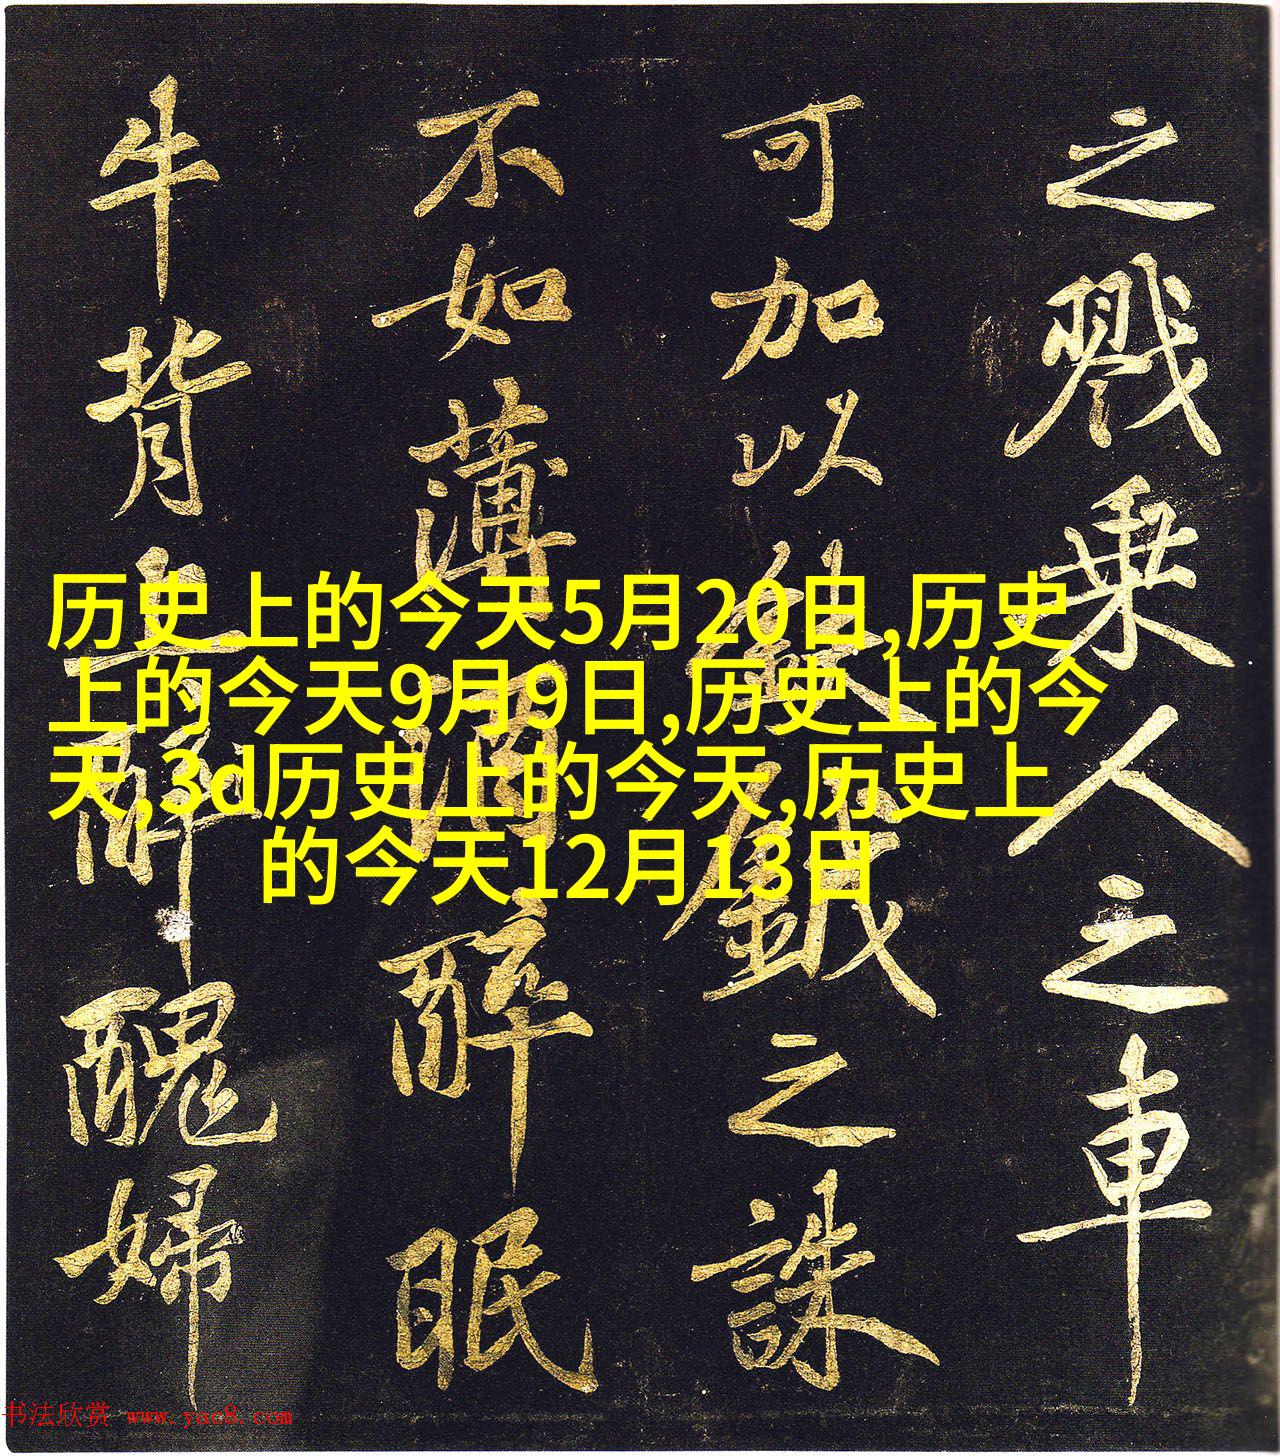 历史上的今天5月20日,历史
上的今天9月9日,历史上的今
天,3d历史上的今天,历史上
的今天12月13日
之戮乘人之車
可加以鈇鉞之誅
不如薄酒醉眠
牛背上醉醜婦
书法欣赏 www.yac8.com